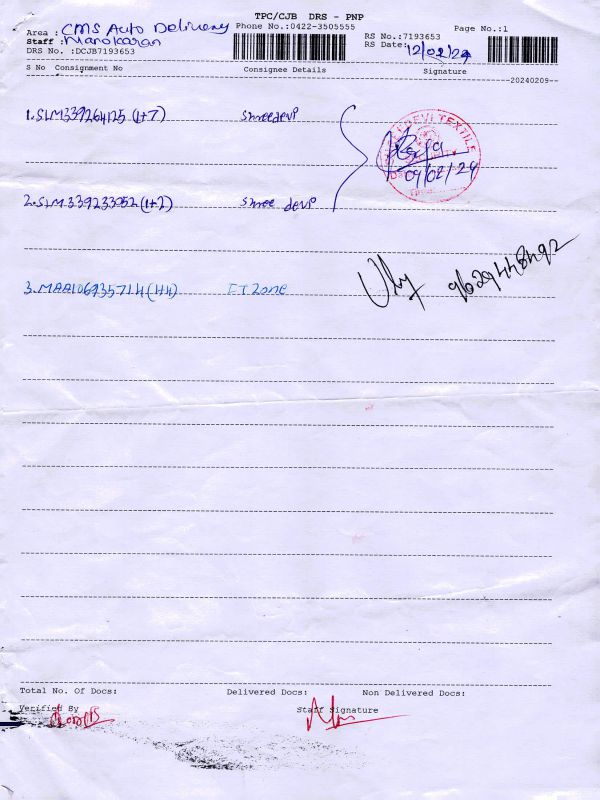 TPC/CJB DRS - PNP
Area : CMS Auto Delivery Phone No.:0422-3505555 Page No.:1
Staff : Manokaran RS No.:7193653
DRS No. :DCJB7193653 RS Date: 12/02/24
S No Consignment No Consignee Details Signature
20240209
1.SLM339264125 (1+7) shreedevi
09/02/24
2.SLM339233052 (1+2) shree devi
3.MAA106935714 (44) ET Zone 9629448492
Total No. Of Docs: Delivered Docs: Non Delivered Docs:
Verified By Staff Signature